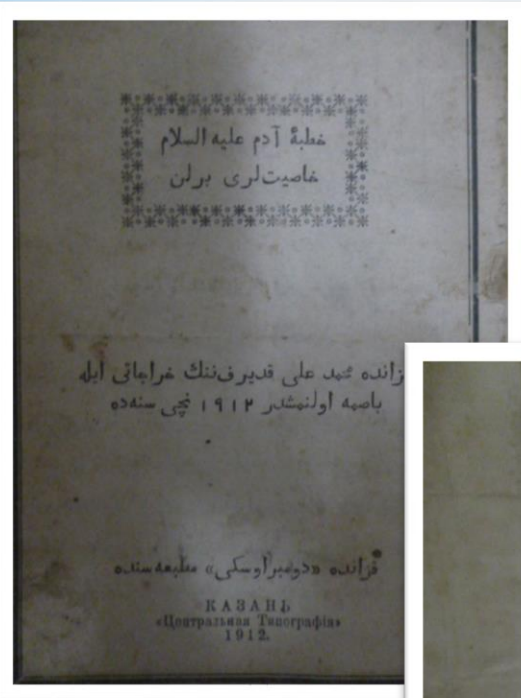 خطبهٔ آدم عليه السلام
خاصيت‌لرى برلن
قزانده محمد على قديرف‌ننك خراجاتى ايله
باصمه اولنمشدر ١٩١٢ نچى سنه‌ده
قزانده «دومبراوسكى» مطبعه‌سنده
КАЗАНЬ
«Центральная Типографія»
1912.